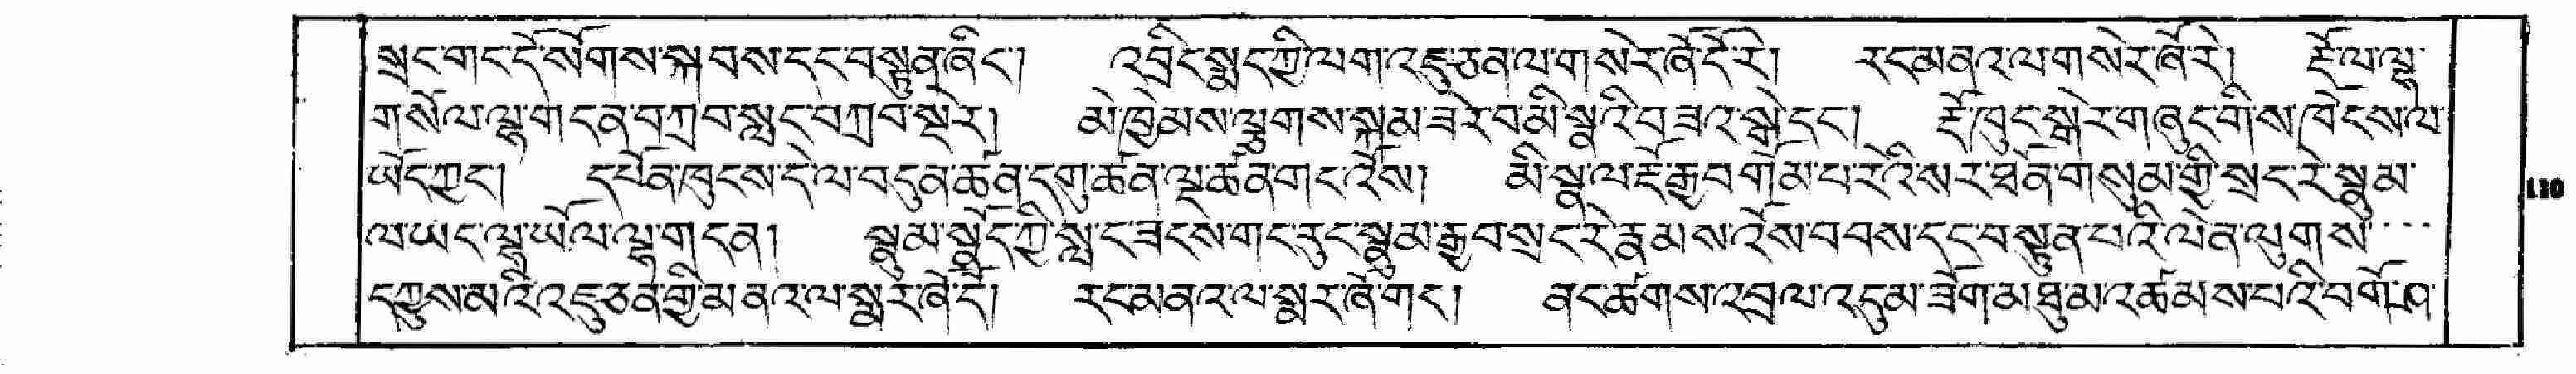 སྲང་གང་དེ་སོགས་སྐབས་དང་བསྟུན་ཞིང༌། འབྲིང་སྨྱང་ཀྱི་ལག་འཇུ་ཅན་ལ་གསེར་ཞོ་དོ་རེ། རང་མནའ་ལ་གསེར་ཞོ་རེ། རྡོ་ལ་ལྷ་
གསོལ་ལྷ་གདན་བཀྲབ་སླང་བཀྲབ་སྡེར། མེ་ཁྱེམས་ལྕགས་སྐམ་ཟེར་བ་མི་སྣའི་བཟའ་སྒྲེ་དང༌། རྡོ་ཁུང་སྒེར་གཞུང་གིས་ཁོངས་ལ་
ཡོང་ཀྱང༌། དཔོན་ཁུངས་དེ་ལ་བདུན་ཚན་དགུ་ཚན་ལྔ་ཚན་གང་འོས། མི་སྣ་ལ་རྡོ་རྒྱབ་གོམ་པ་རེའི་སར་ཐོན་གསུམ་གྱི་སྲང་རེ་སྣུམ་
ལ་ཡང་ལྷ་ཡོལ་ལྷ་གདན། སྣུམ་སྣོད་ཀྱི་སླ་ང་ཟངས་གང་རུང་སྣུམ་རྒྱབ་སྲང་རེ་རྣམས་འོས་བབས་དང་བསྟུན་པའི་ལེན་ལུགས་...
དཀྱུས་མའི་འཇུ་ཅན་གྱི་མནའ་ལ་སྨར་ཞོ་དོ། རང་མནའ་ལ་སྨར་ཞོ་གང༌། ནང་ཚགས་འབྲལ་འདུམ་ཟོག་མཐུམ་འཚམས་པའི་བགོ་ཤ་
110